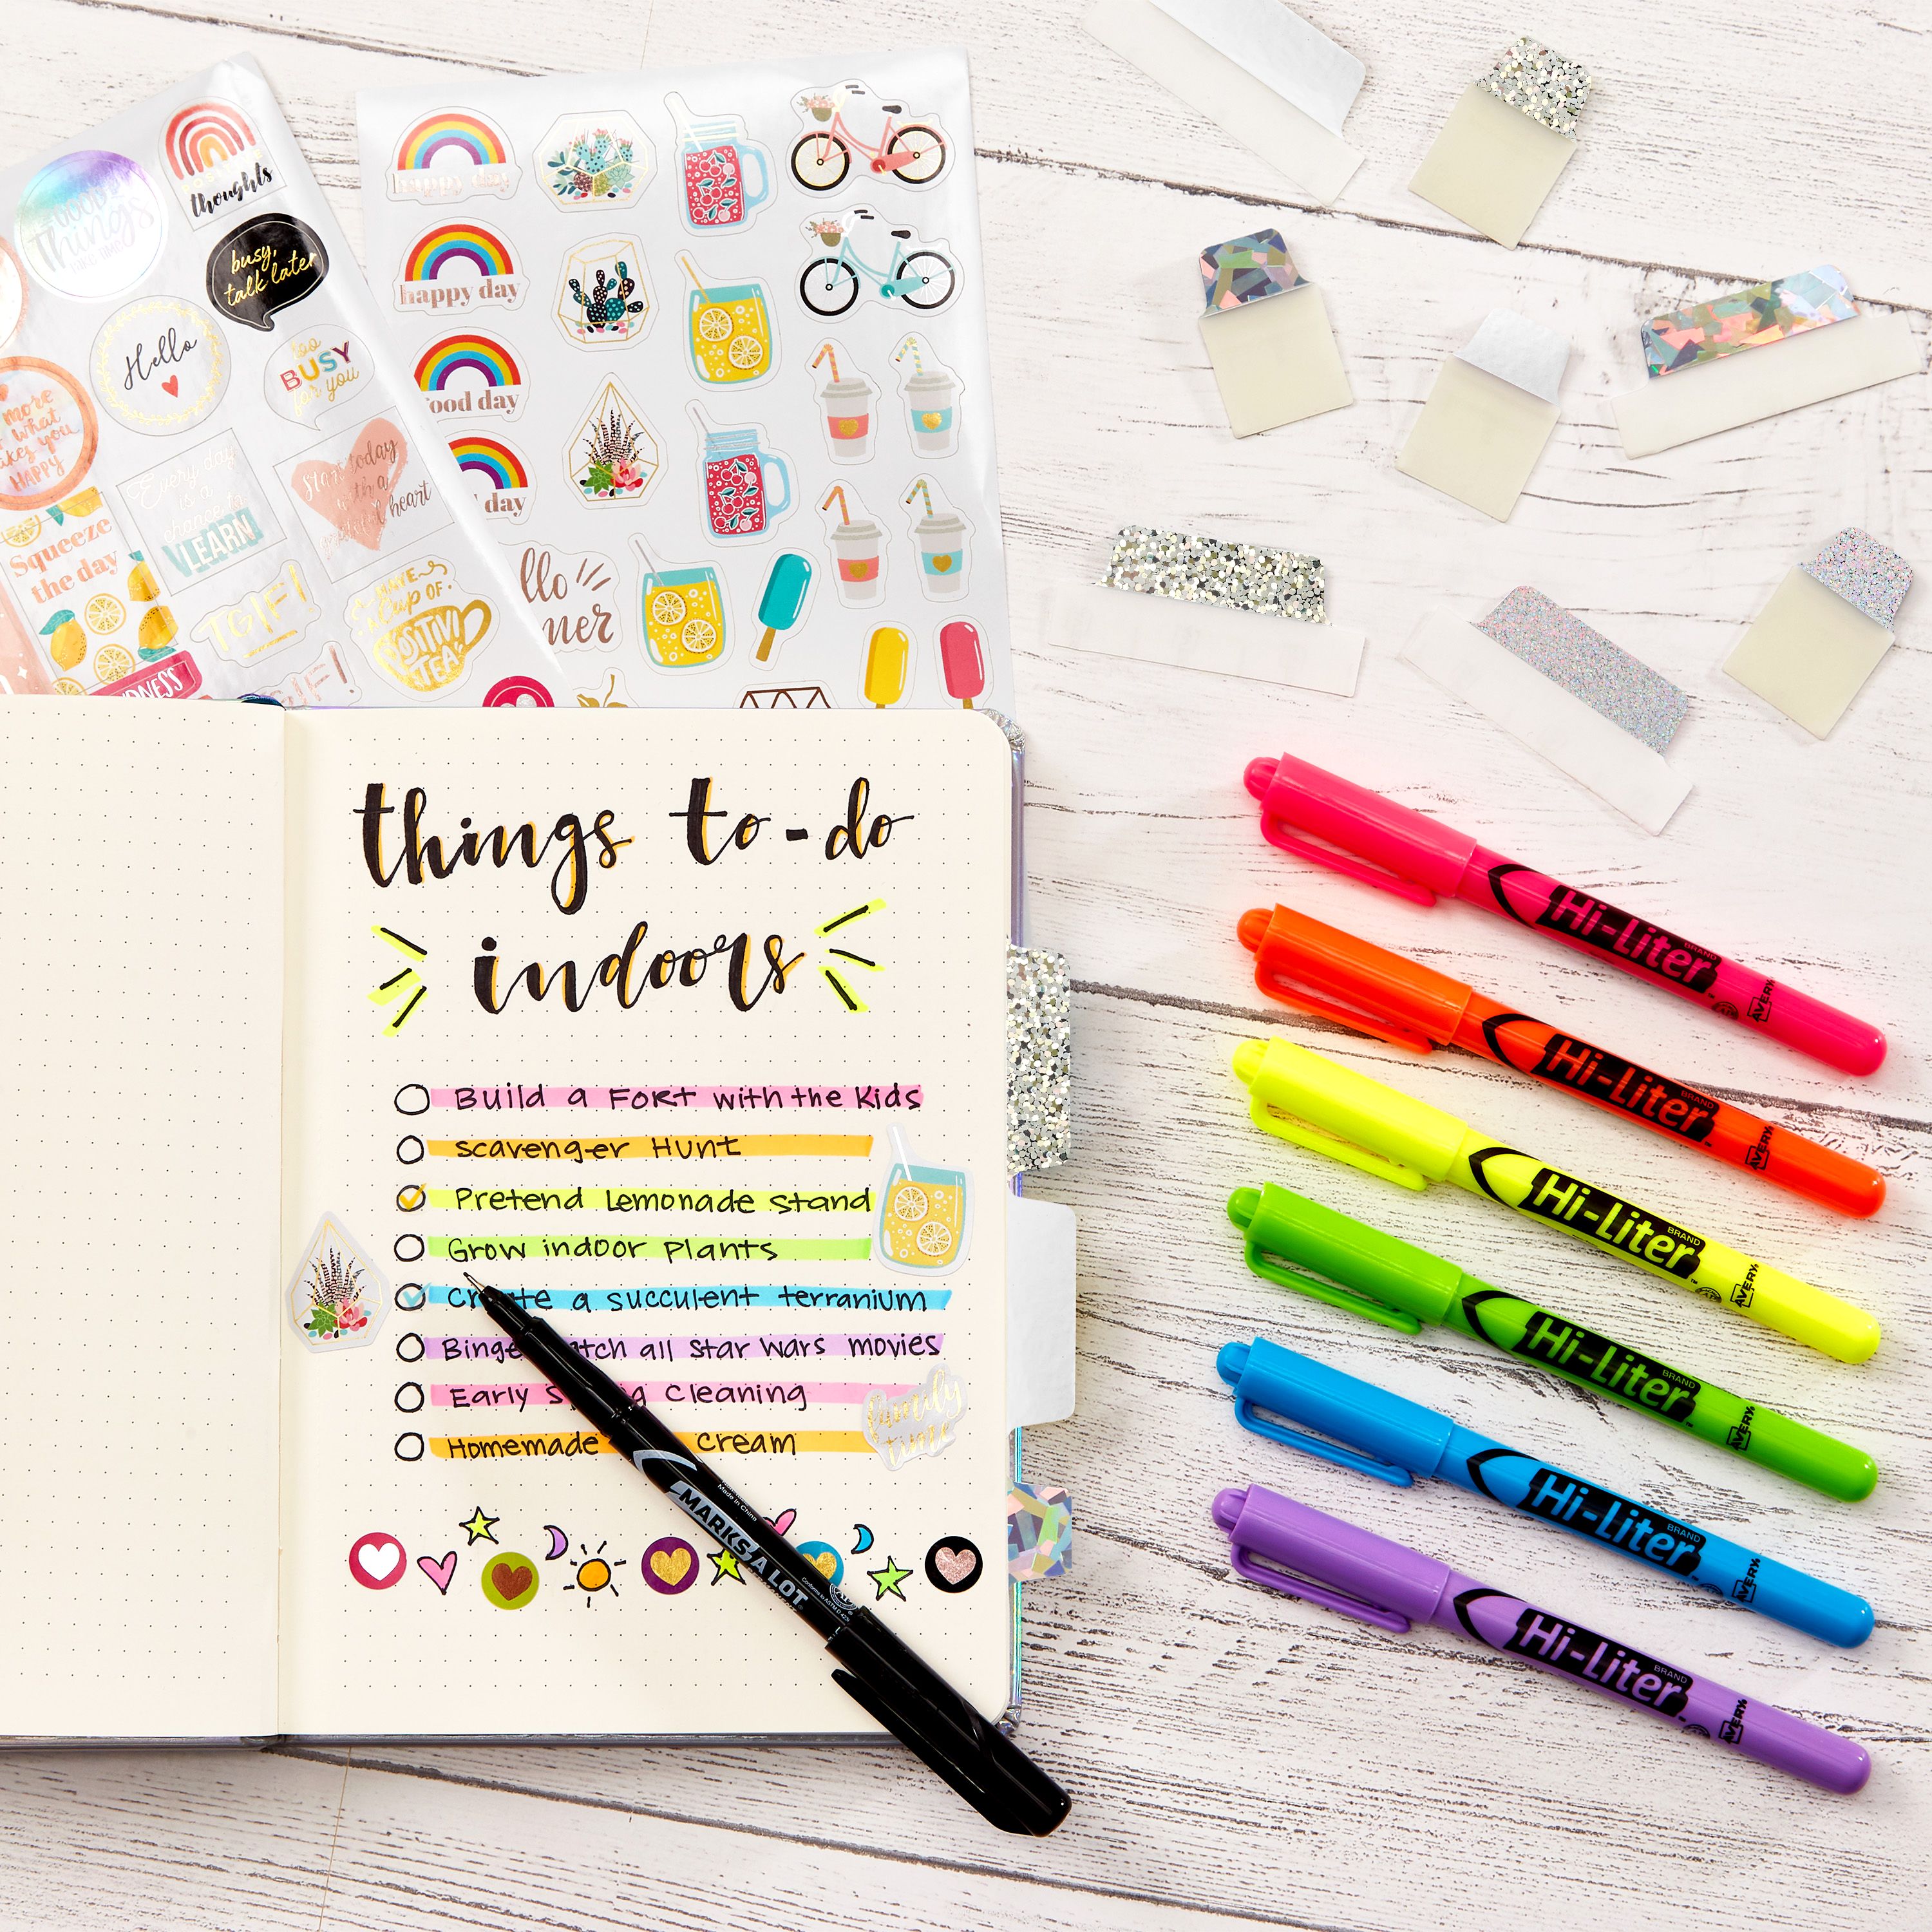 GOOD
Things
thoughts
busy,
talk later
Hello
too
BUSY
for you
more
what
makes you
HAPPY
Every day
is a
chance to
LEARN
Start today
with a
grateful heart
Squeeze
the day
TGIF!
HAVE
a cup of
POSITIVI
TEA
happy day
happy day
ood day
day
llo
things to-do
indoors
Build a FORT with the Kids
Scavenger Hunt
Pretend Lemonade Stand
Grow indoor plants
Create a succulent terranium
Binge watch all Star Wars movies
Early spring cleaning
Homemade Cream
family
time
MARKS A LOT
Made in China
Hi-Liter
BRAND
AVERY
Hi-Liter
BRAND
AVERY
Hi-Liter
BRAND
AVERY
Hi-Liter
BRAND
AVERY
Hi-Liter
BRAND
AVERY
Hi-Liter
BRAND
AVERY